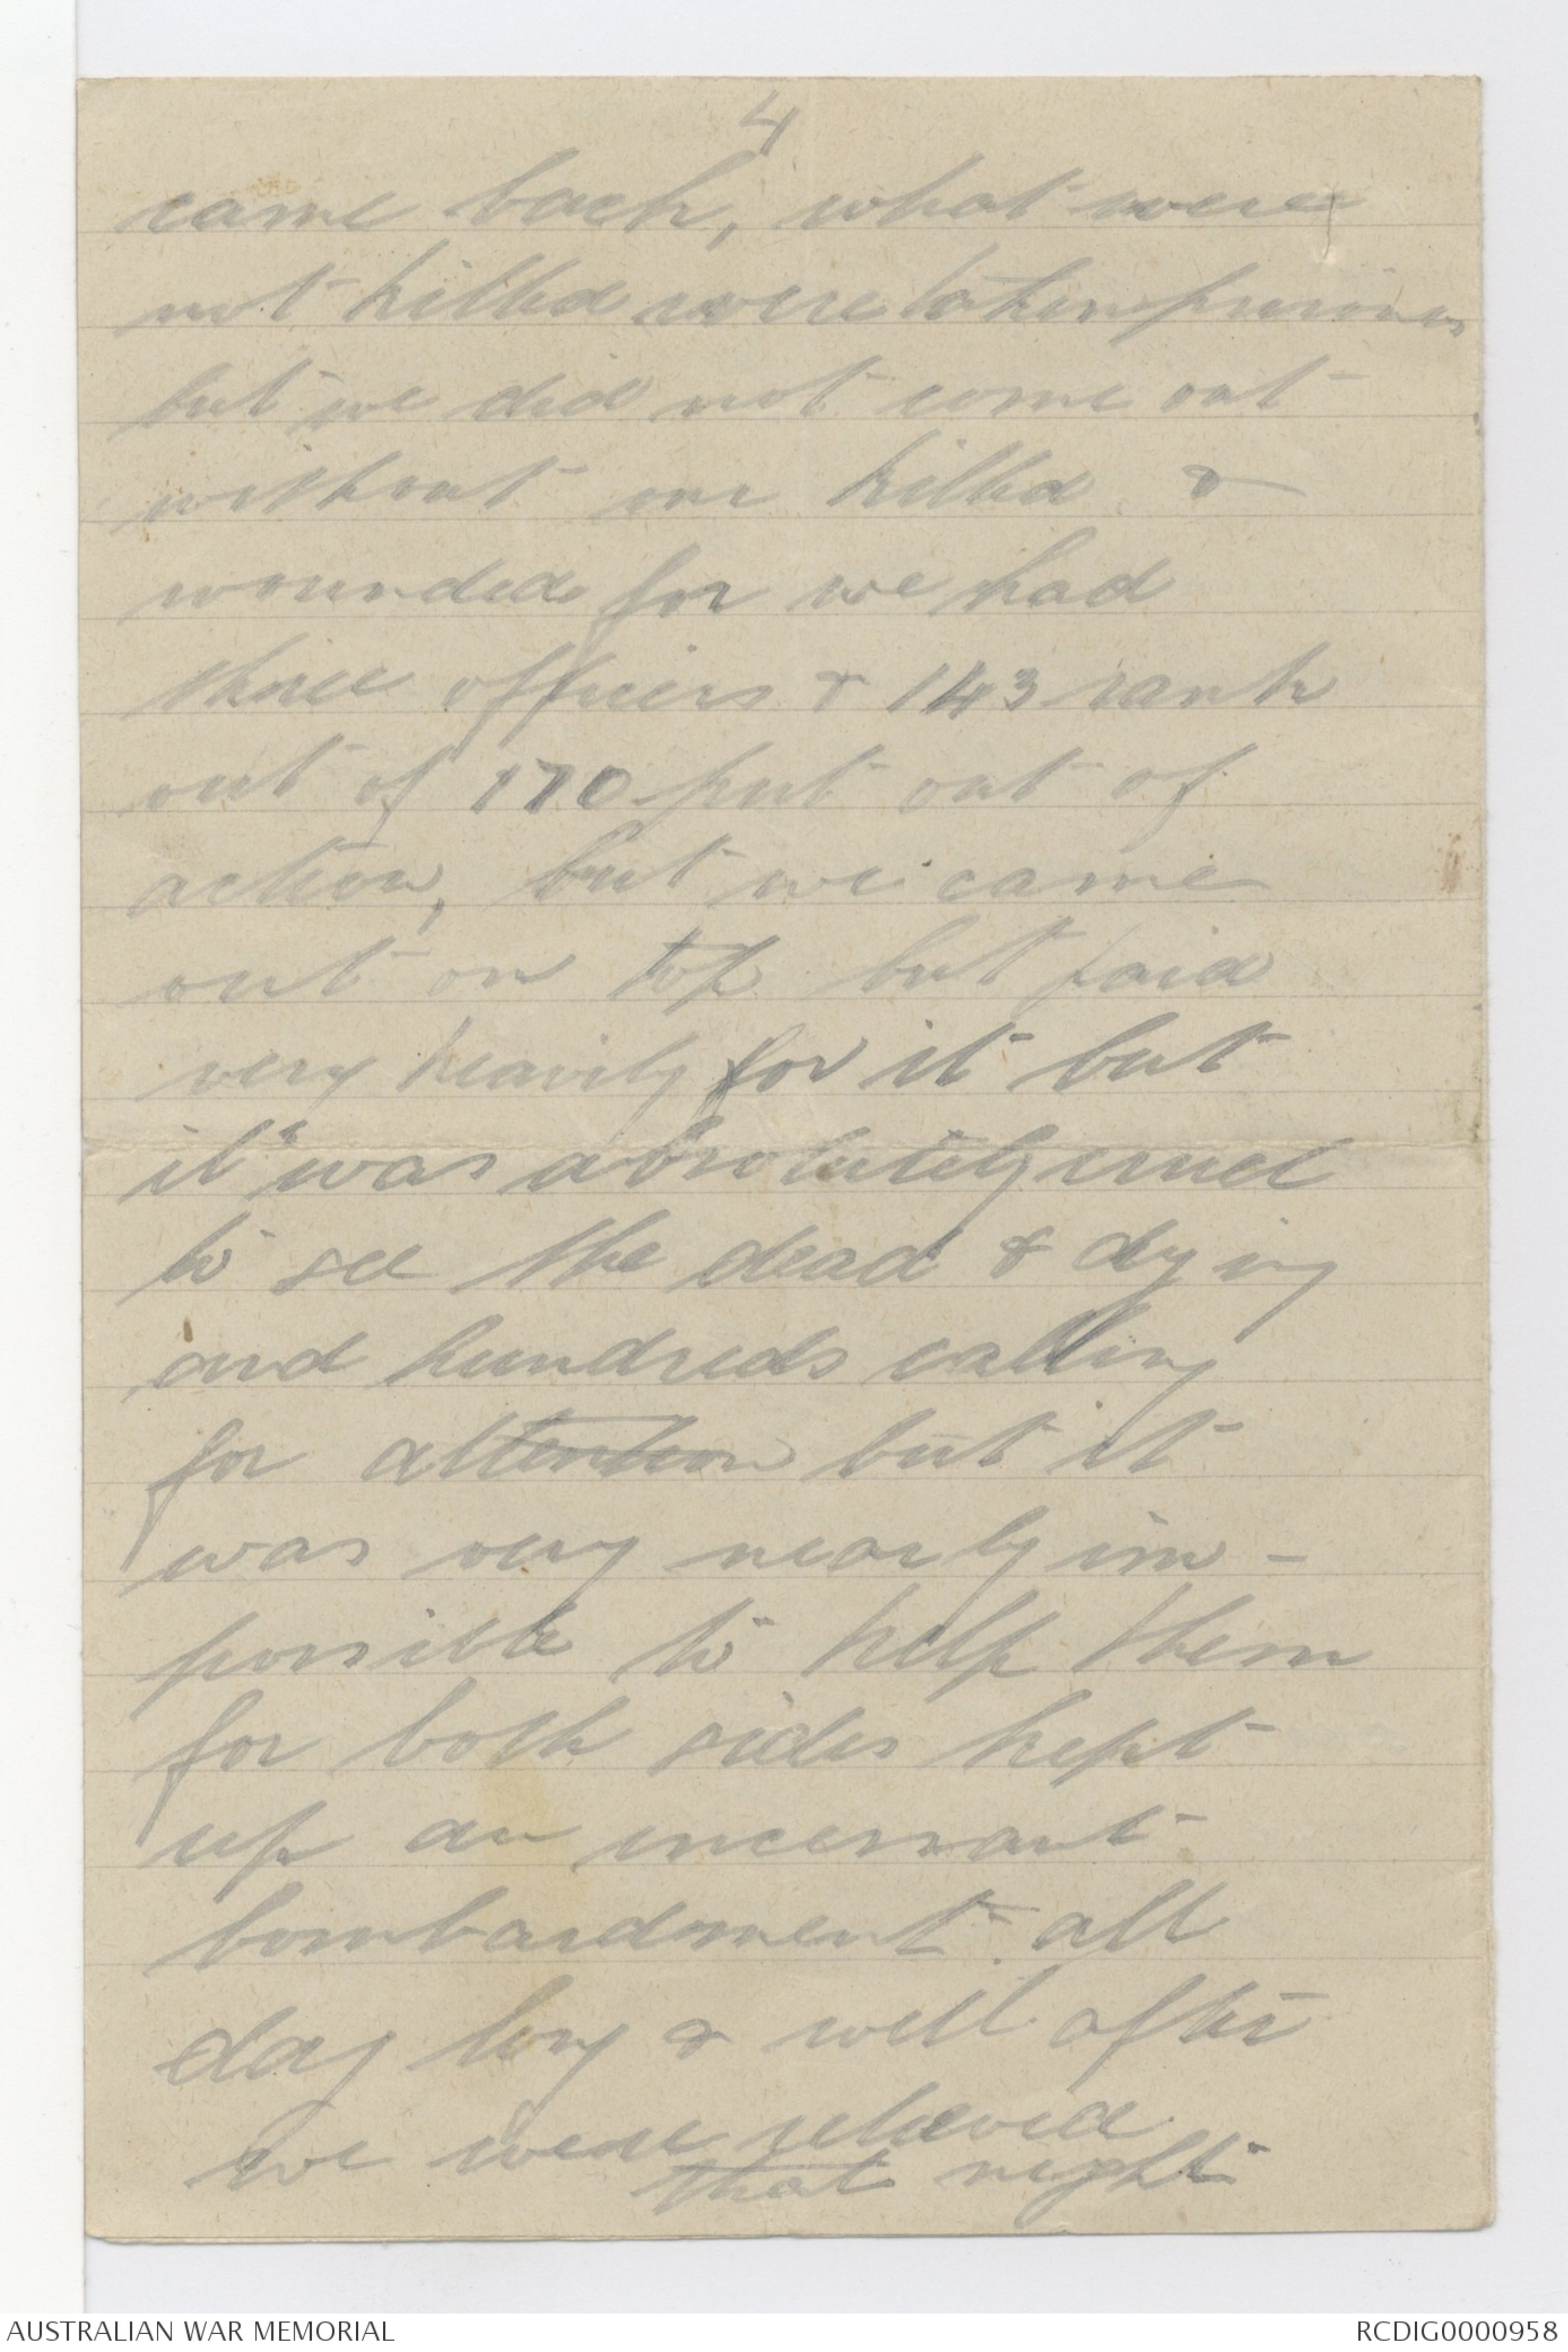 4
came back, what were
not killed were taken prisoners
but we did not come out
without our killed &
wounded for we had
three officers & 143 rank
out of 170 put out of
action, but we came
out on top but paid
very heavily for it but
it was absolutely cruel
to see the dead & dying
and hundreds calling
for attention but it
was very nearly im-
possible to help them
for both sides kept
up an incessant
bombardment all
day long & well after
we were relieved
that night
AUSTRALIAN WAR MEMORIAL
RCDIG0000958